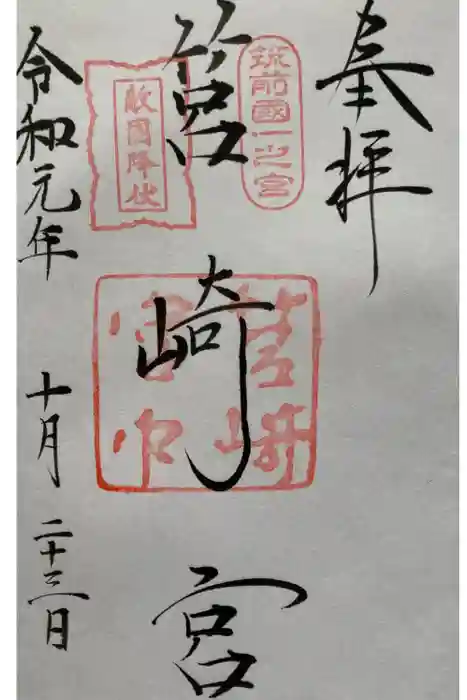 奉拝
筑前國一之宮
筥崎宮
敵国降伏
筥崎宮印
令和元年 十月 二十三日